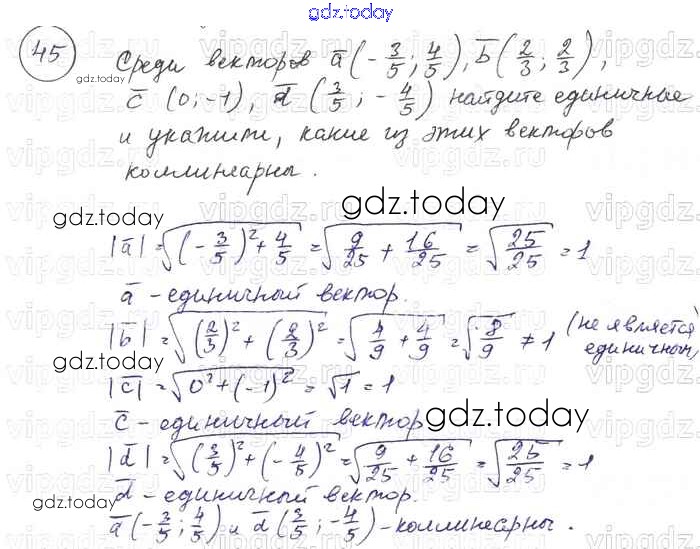 gdz.today
45 Среди векторов a̅ (-3/5; 4/5), b̅ (2/3; 2/3),
gdz.today
c̅ (0; -1), d̅ (3/5; -4/5) найдите единичные
и укажите, какие из этих векторов
коллинеарны.
gdz.today
gdz.today
|a̅| = √((-3/5)² + 4/5) = √(9/25 + 16/25) = √(25/25) = 1
a̅ - единичный вектор.
|b̅| = √((2/3)² + (2/3)²) = √(4/9 + 4/9) = √(8/9) ≠ 1 (не является
единичным)
gdz.today
|c̅| = √(0² + (-1)²) = √1 = 1
c̅ - единичный вектор
gdz.today
|d̅| = √((3/5)² + (-4/5)²) = √(9/25 + 16/25) = √(25/25) = 1
gdz.today
d̅ - единичный вектор.
a̅ (-3/5; 4/5) и d̅ (3/5; -4/5) - коллинеарны.